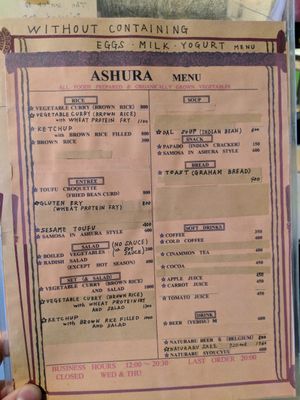 WITHOUT CONTAINING
EGGS · MILK · YOGURT MENU
ASHURA MENU
ALL FOODS PREPARED & ORGANICALLY GROWN VEGETABLES
RICE
☆VEGETABLE CURRY (BROWN RICE) 800
☆VEGETABLE CURRY (BROWN RICE)
with WHEAT PROTEIN FRY
☆KETCHUP
with BROWN RICE FILLED 800
☆BROWN RICE 300
ENTREE
☆TOUFU CROQUETTE
(FRIED BEAN CURD)
☆GLUTEN FRY 800
(WHEAT PROTEIN FRY)
☆SESAME TOUFU 400
☆SAMOSA IN ASHURA STYLE 600
SALAD
(NO SAUCE)
☆BOILED VEGETABLES
☆RADISH SALAD
(EXCEPT HOT SEASON)
SET (& SALAD)
☆VEGETABLE CURRY (BROWN RICE)
AND SALAD 1000
☆VEGETABLE CURRY (BROWN RICE)
with WHEAT PROTEIN FRY
AND SALAD
☆KETCHUP
with BROWN RICE FILLED
AND SALAD
SOUP
☆DAL SOUP (INDIAN BEAN)
SNACK
☆PAPADO (INDIAN CRACKER) 150
☆SAMOSA IN ASHURA STYLE 600
BREAD
☆TOAST (GRAHAM BREAD)
SOFT DRINK
☆COFFEE 350
☆COLD COFFEE 400
☆CINAMMON TEA
☆COCOA 450
☆APPLE JUICE 450
☆CARROT JUICE
☆TOMATO JUICE 450
DRINK
☆BEER (YEBISU) M 600
☆NATURABU BEER & (BELGIUM)
☆NATURABU SAKE
☆NATURABU SYOUCYUU
BUSINESS HOURS 12:00~20:30 LAST ORDER 20:00
CLOSED WED & THU